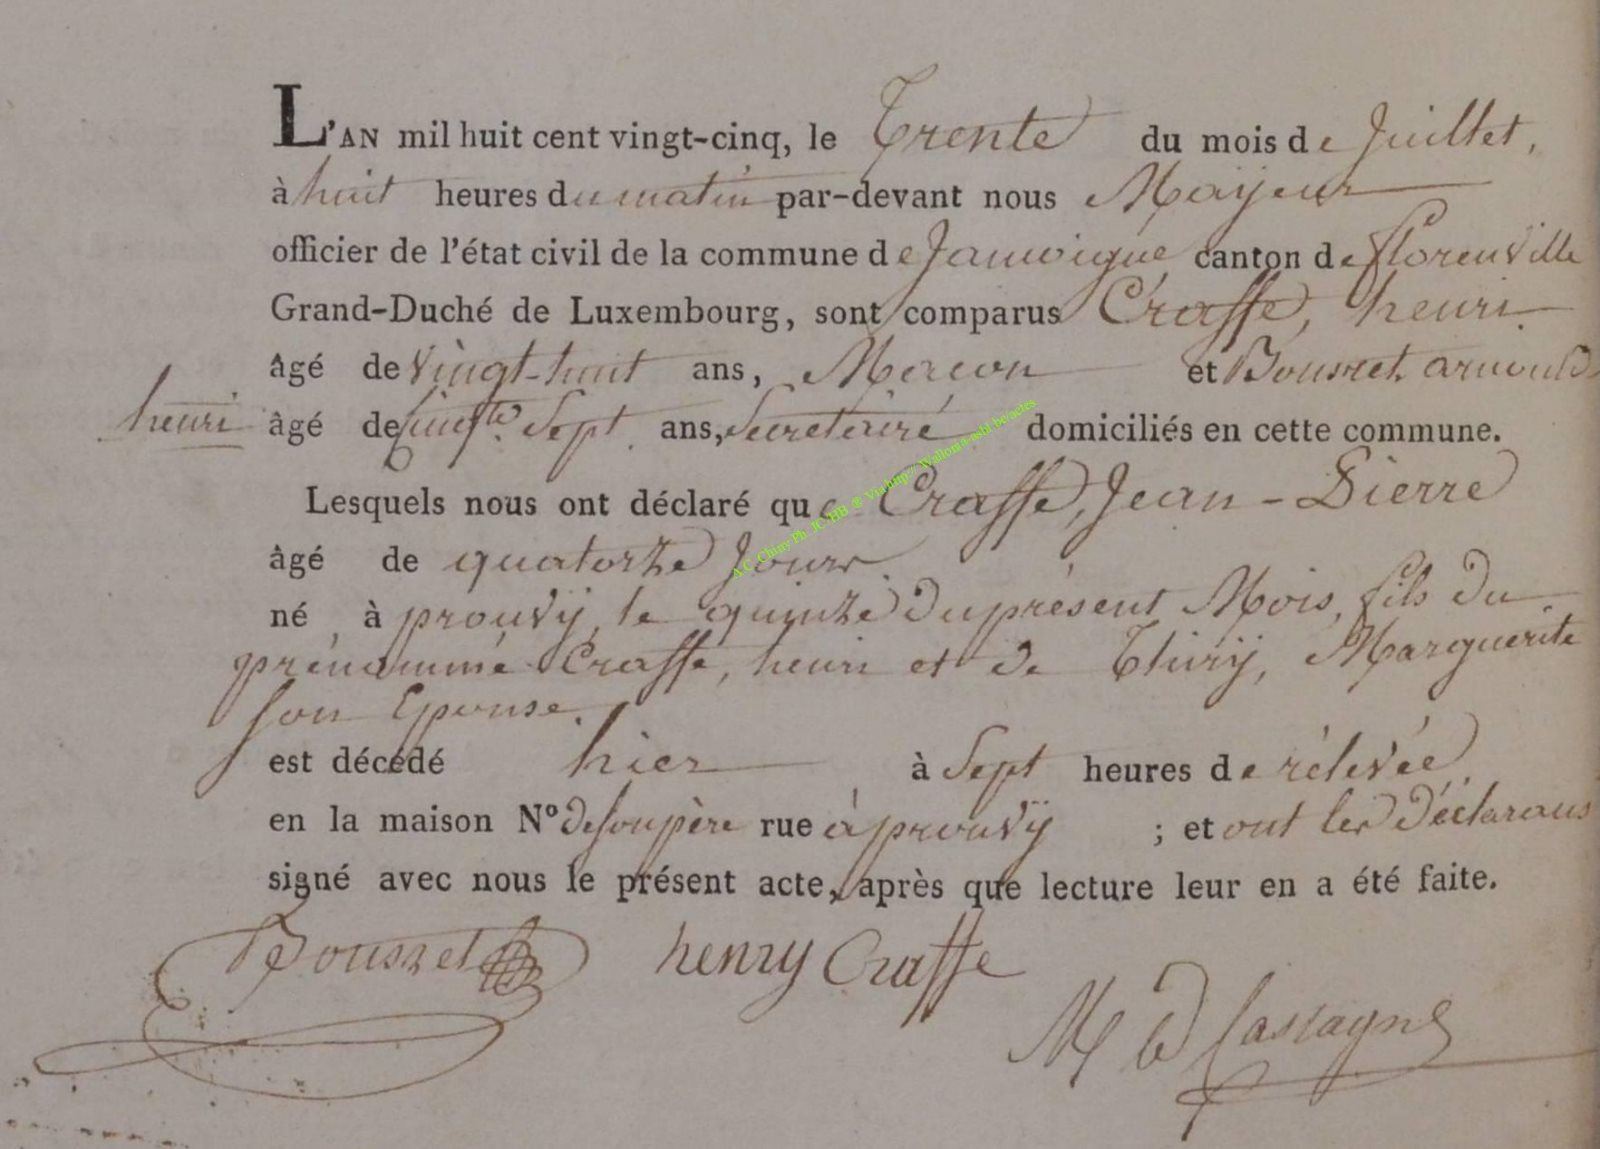 L'AN mil huit cent vingt-cinq, le Trente du mois de Juillet,
à huit heures du matin par-devant nous Mayeur
officier de l'état civil de la commune de Jamoigne canton de florenville
Grand-Duché de Luxembourg, sont comparus Craffe, henri
âgé de vingt-huit ans, Macon et Bousret, arnould
henri âgé de cinqte. Sept ans, Secretaire domiciliés en cette commune.
Lesquels nous ont déclaré que Craffe, Jean-Pierre
âgé de quatorze Jours
né à prouvy, le quinze du présent Mois, fils du
prénommé Craffe, henri et de Thiry, Marguerite
son Epouse.
est décédé hier à Sept heures de rélevée
en la maison N° de son père rue à prouvy ; et ont les déclarans
signé avec nous le présent acte, après que lecture leur en a été faite.
Bousret henry Craffe
A.C. Chiny Ph JC-HB @ Via http// Wallonia-asbl be/actes